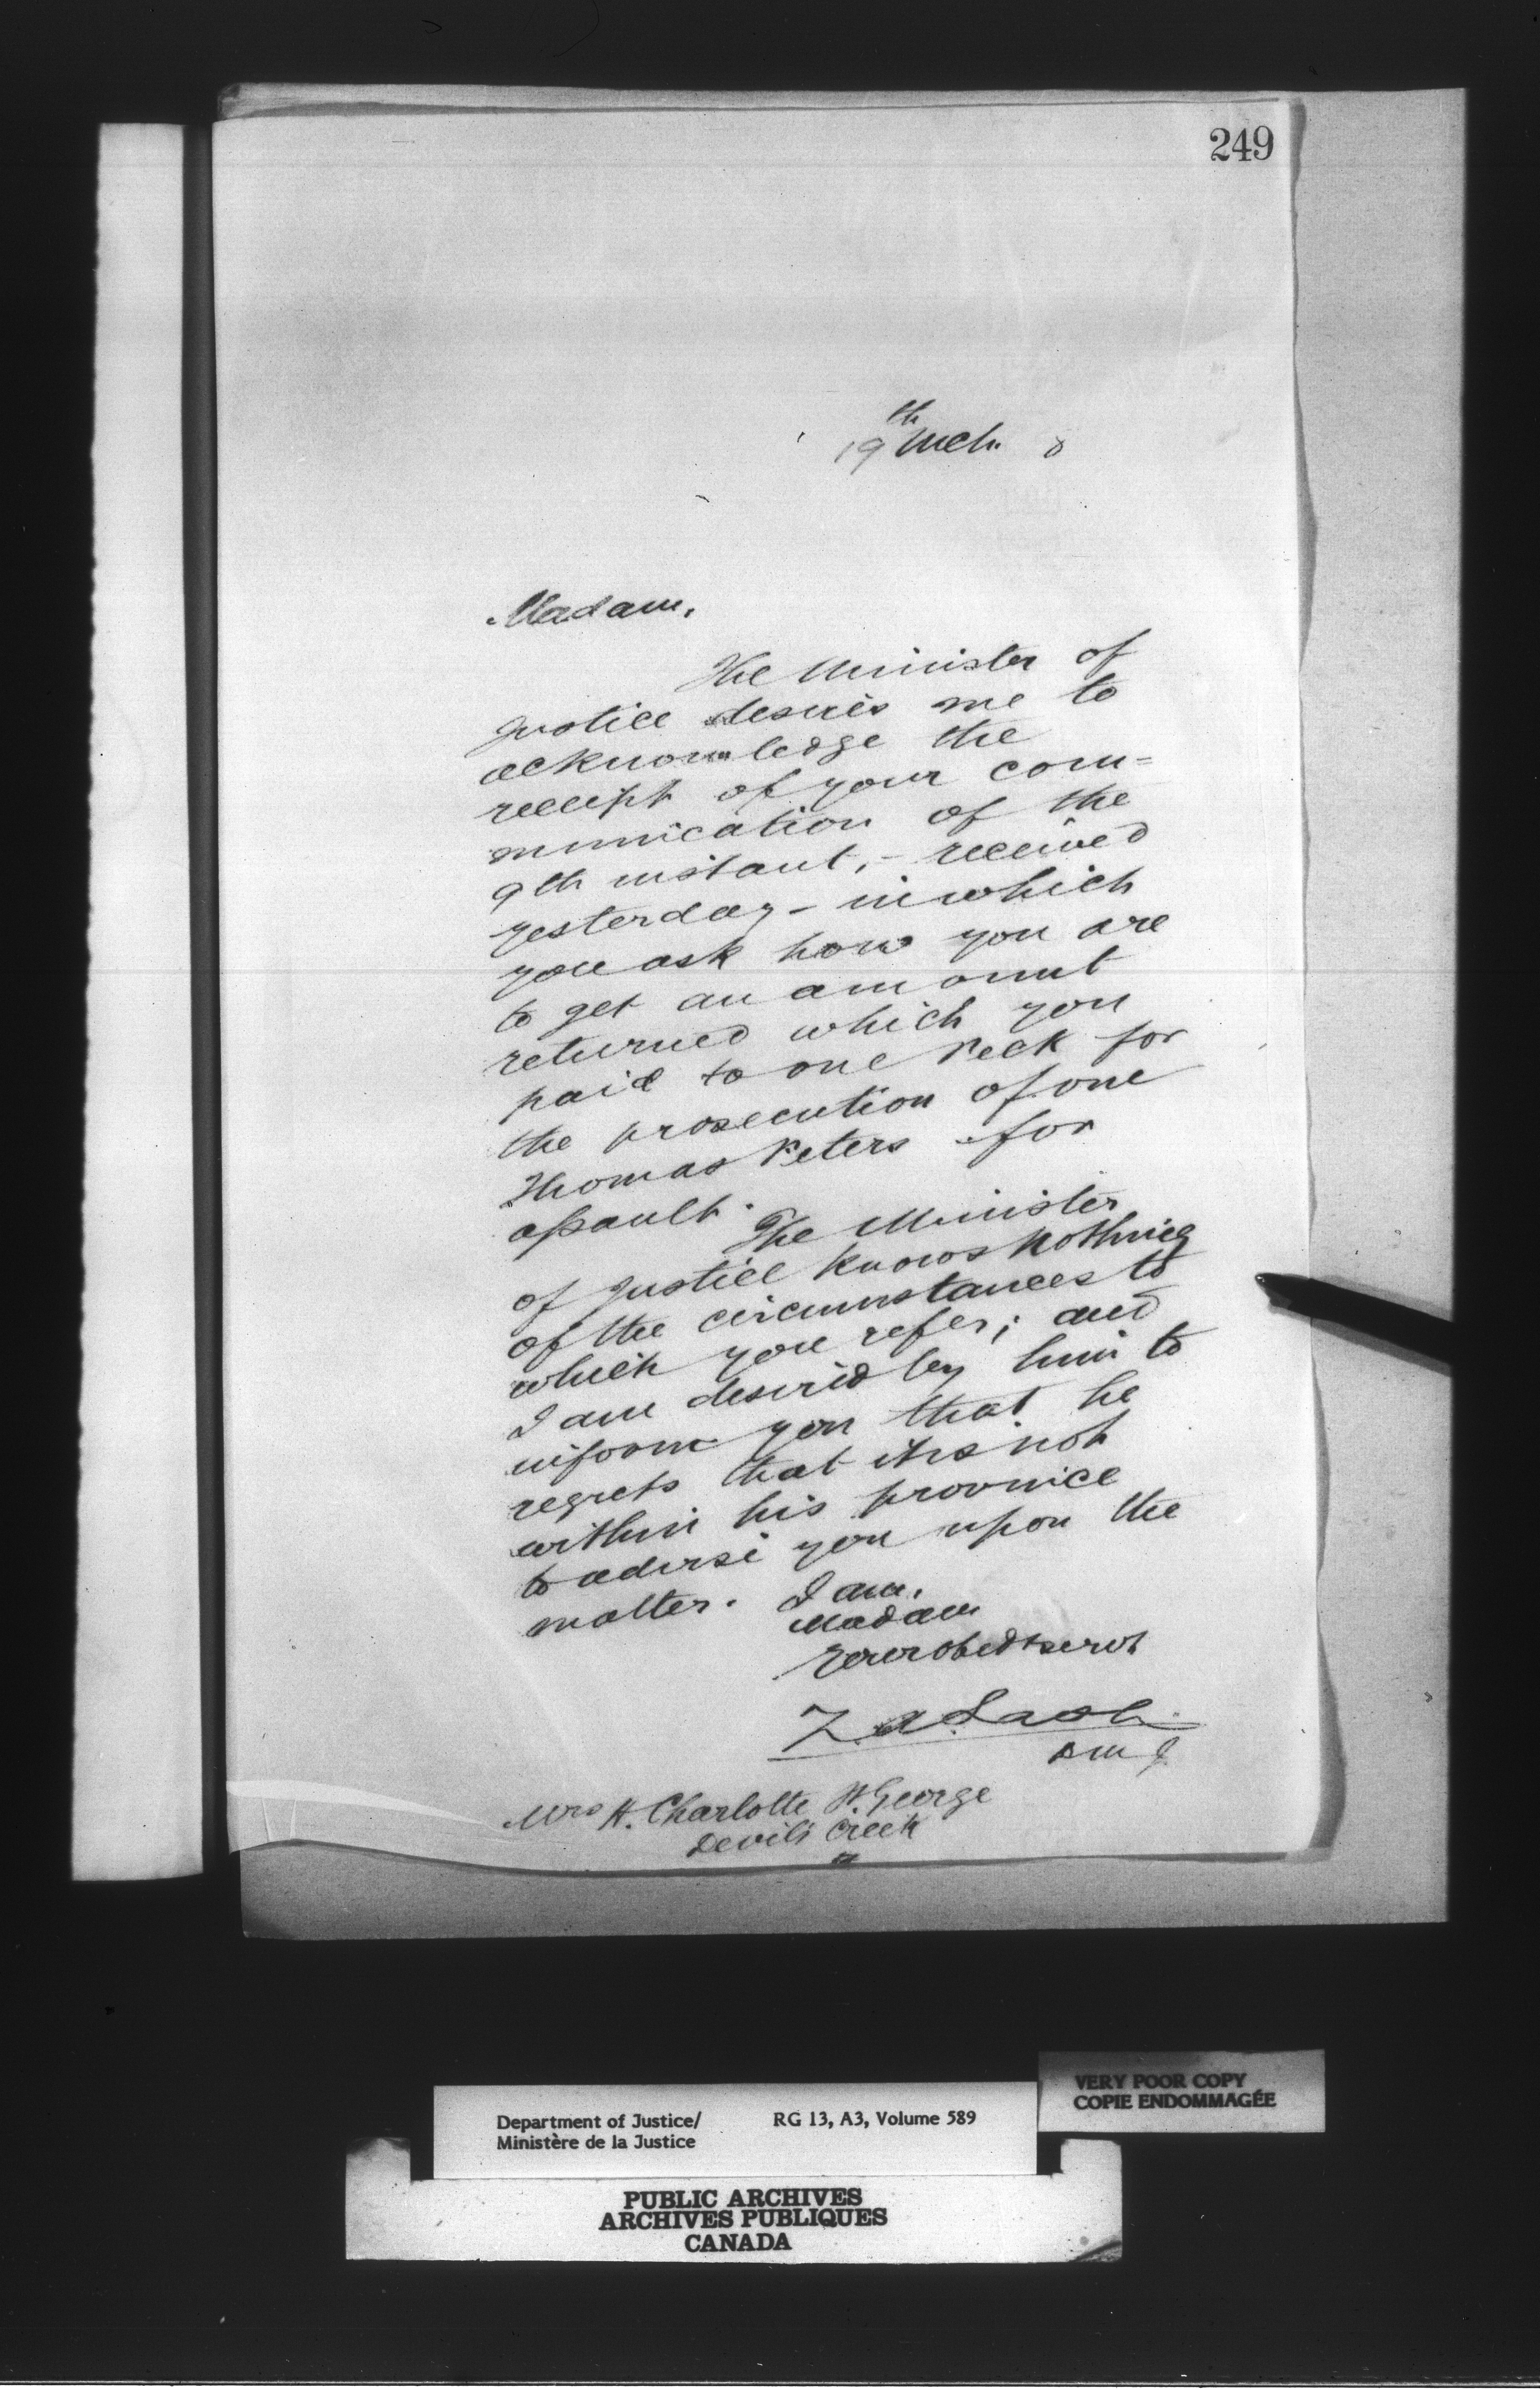 249
19th Mch. 8
Madam,
The Minister of
Justice desires me to
acknowledge the
receipt of your com=
munication of the
9th instant, - received
yesterday - in which
you ask how you are
to get an amount
returned which you
paid to one Peck for
the prosecution of one
Thomas Peters for
assault.
The Minister
of Justice knows nothing
of the circumstances to
which you refer; and
I am desired by him to
inform you that he
regrets that it is not
within his province
to advise you upon the
matter.
I am,
Madam
Your obedt servt
Z. A. Lash
D M J.
Mrs H. Charlotte W. George
Devils Creek
Department of Justice/
Ministère de la Justice
RG 13, A3, Volume 589
VERY POOR COPY
COPIE ENDOMMAGÉE
PUBLIC ARCHIVES
ARCHIVES PUBLIQUES
CANADA